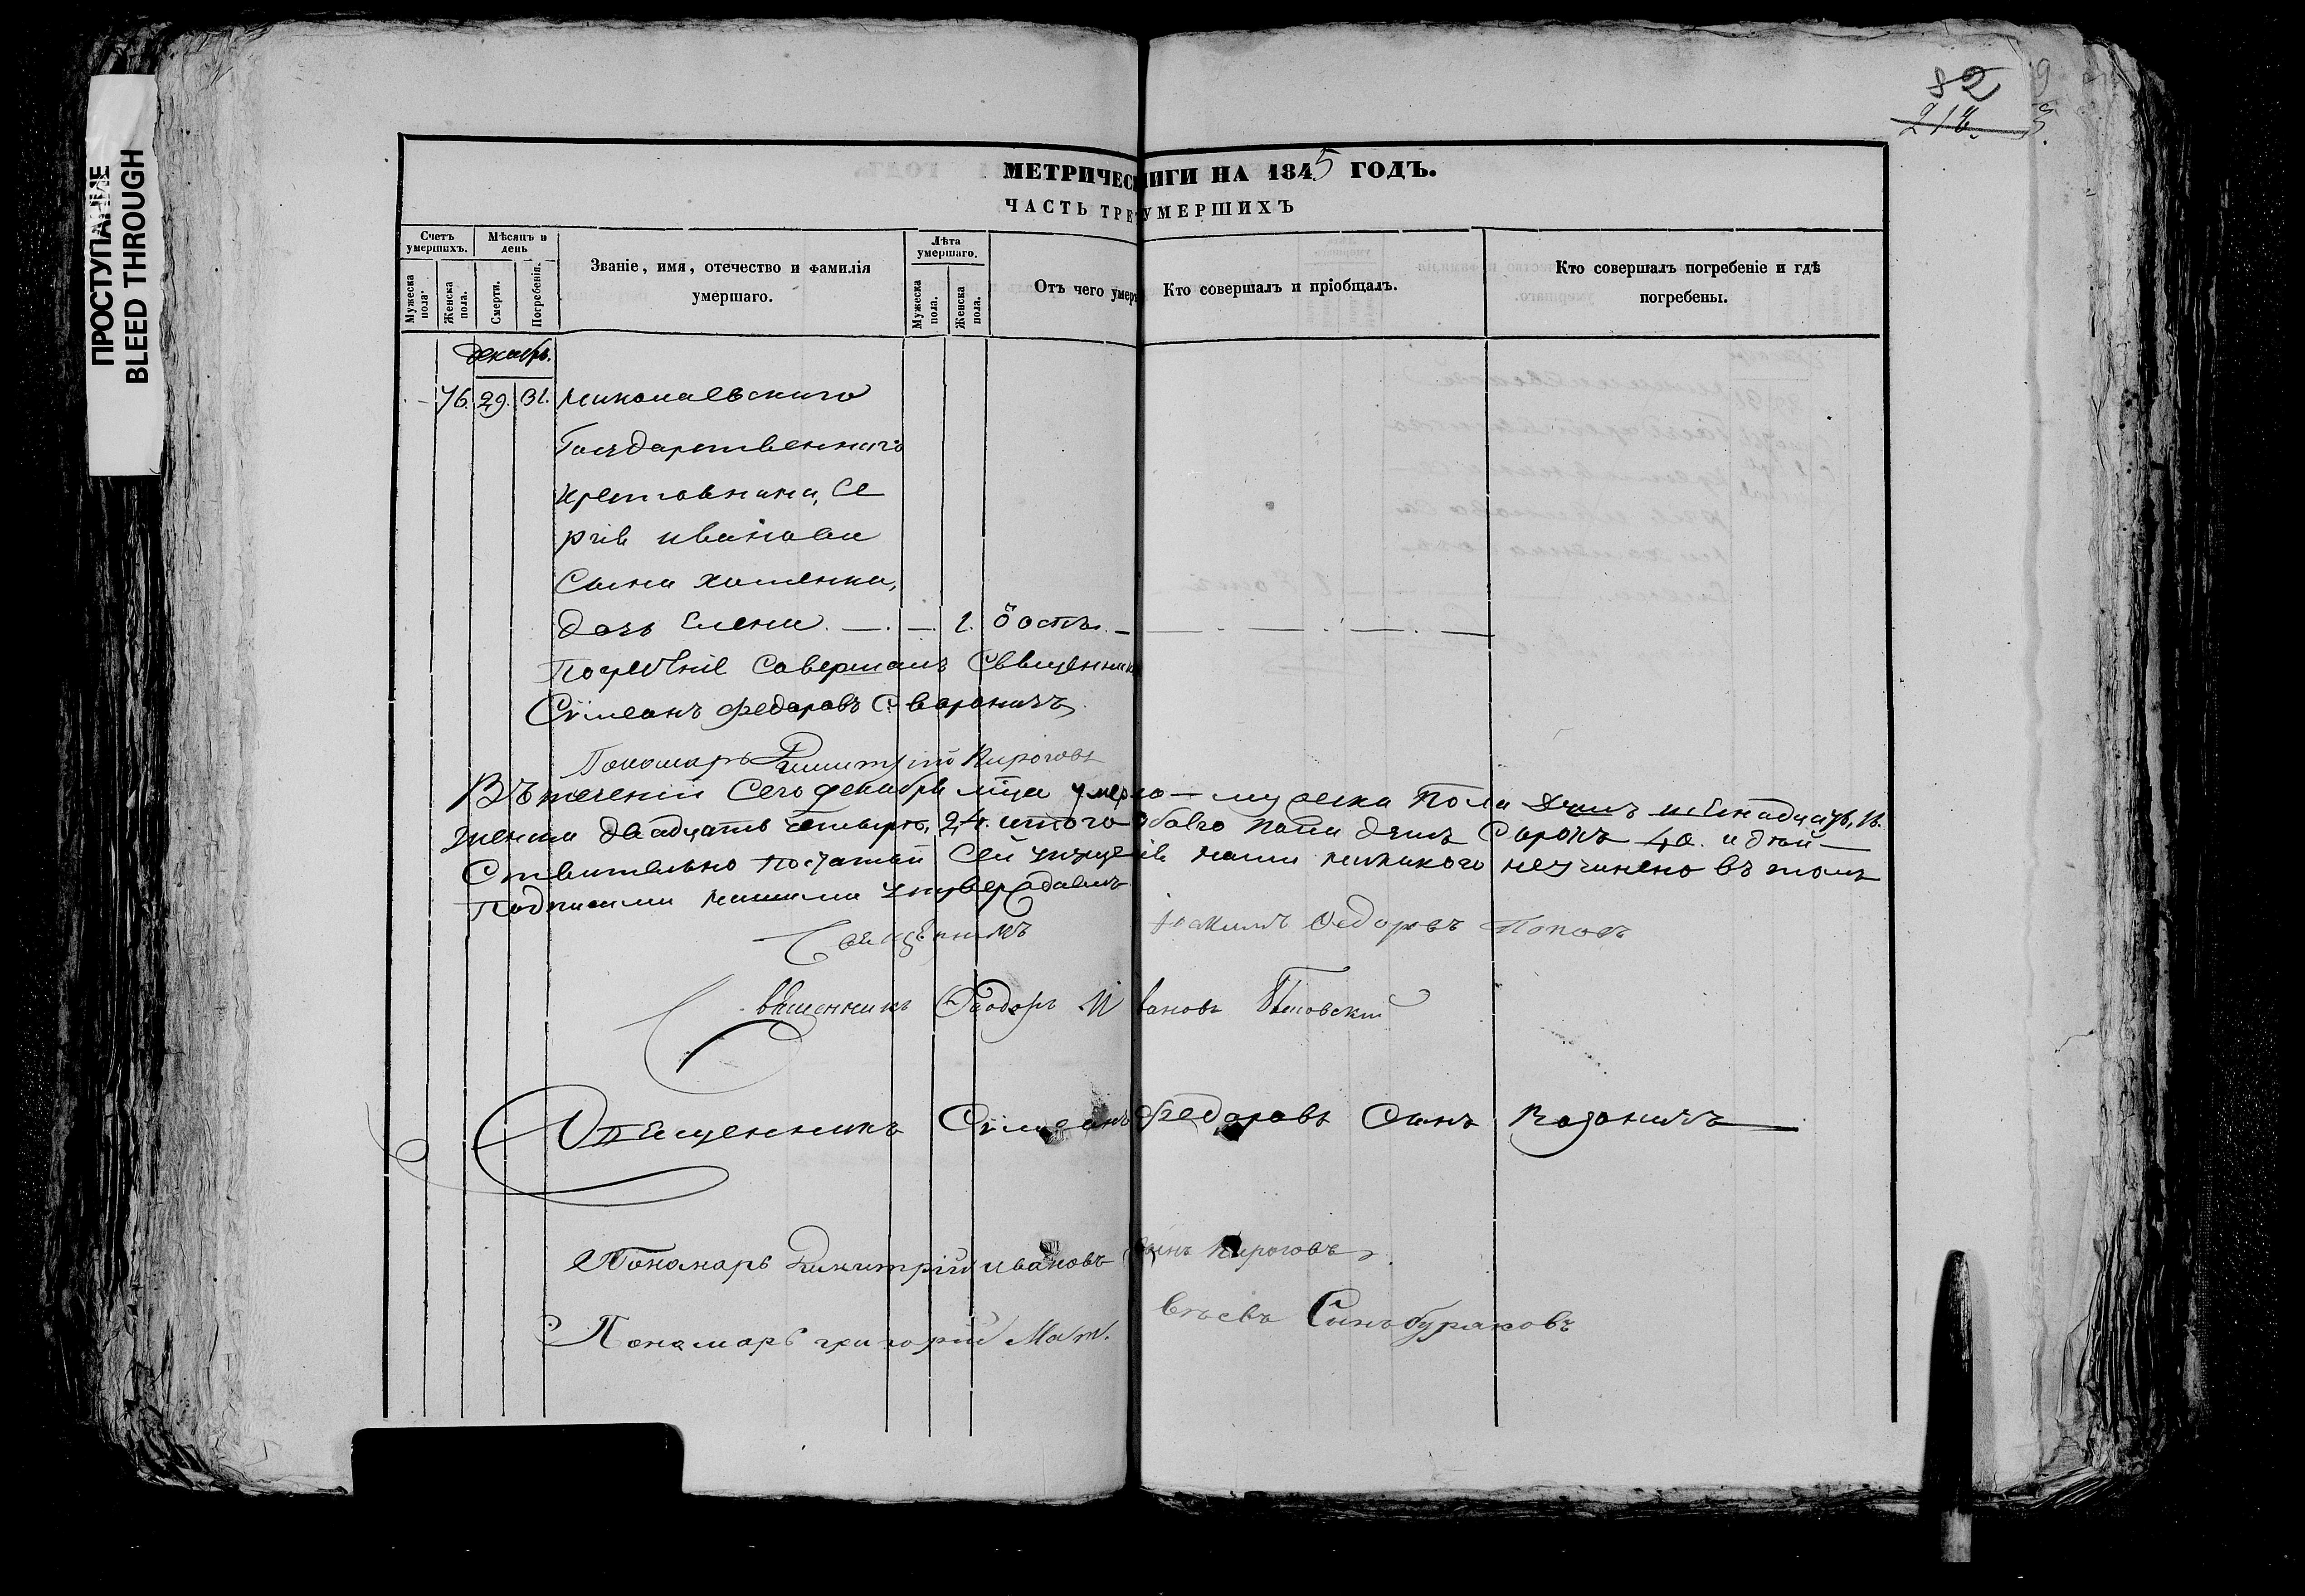 ПРОСТУПАНИЕ
BLEED THROUGH
82
218.
МЕТРИЧЕС ИГИ НА 1845 ГОДЪ.
ЧАСТЬ ТРЕ УМЕРШИХЪ
Счетъ умершихъ.
Мужеска пола.
Женска пола.
Мѣсяцъ и день
Смерти.
Погребенія.
Званіе, имя, отечество и фамилія умершаго.
Лѣта умершаго.
Мужеска пола.
Женска пола.
Отъ чего умер
Кто совершалъ и пріобщалъ.
Кто совершалъ погребеніе и гдѣ погребены.
декабрь.
76. 29. 31. Николаевскаго
Государственнаго
Се
ргія иванова
Сына хоменка,
дочь Елена. — 1. ѿ оспы. —
Погребеніе Совершалъ Священникъ
Сѵмеонъ Федоровъ
Пономарь Димитрій Пироговъ
Въ теченіи Сего декабря мца умерло — мужеска пола
женска двадцать четыре, 24. итого обоего пола душъ Сорокъ 40. и дѣй—
Ствительно по сей никого не учинено въ томъ
Подписами нашими утверждаемъ
Священникъ Іоакимъ Федоровъ Поповъ
Священникъ Феодоръ Ивановъ
Священникъ Сѵмеонъ Федоровъ Сынъ
Пономарь Димитрій ивановъ Сынъ Пироговъ
Пономарь григорій Матвѣевъ Синобураковъ